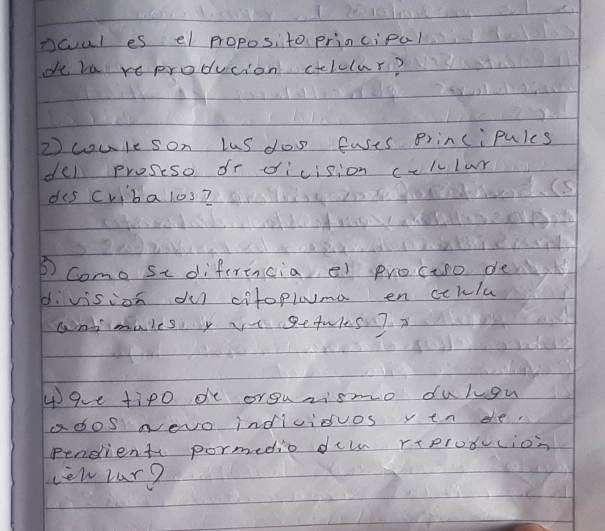 1) Cual es el proposito principal
de la reproducion celular?
2) cuale son las dos fases principales
del proseso de division celular
des cribalos?
3) Como se diferencia el proceso de
división del citoplasma en celula
animales y ve getales?
4) que tipo de organismo da
ados nevo individuos y en de.
pendiente pormedio dela reproducion
celular?